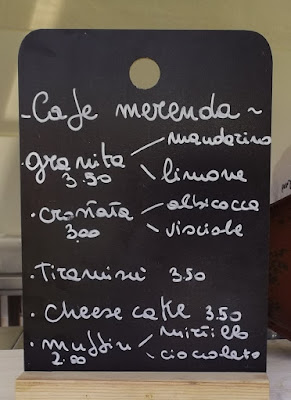 ~Cafe merenda~
mandarino
.granita
3.50
limone
albicocca
.crostata
3.00
visciole
.Tiramisù 3.50
.cheese cake 3.50
mirtillo
.muffin
2.00
cioccolato